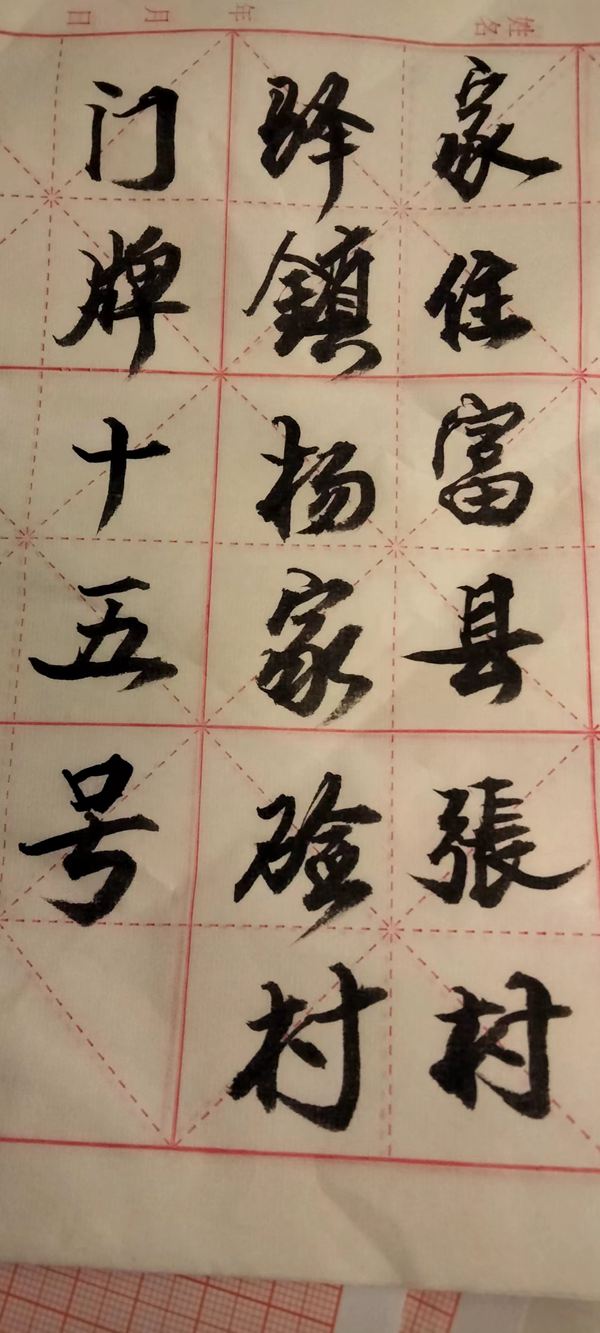 姓名
年 月 日
家住富县張村
驿鎮杨家硷村
门牌十五号